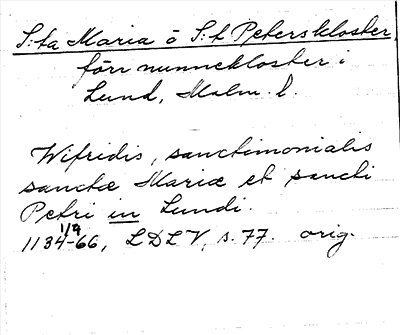 S:ta Maria o S:t Peterskloster,
förr nunnekloster i
Lund, Malm. l.
Wifridis, sanctimonialis
sanctæ Mariæ et sancti
Petri in Lundi.
1/9
1134-66, LDLV, s. 77. orig.